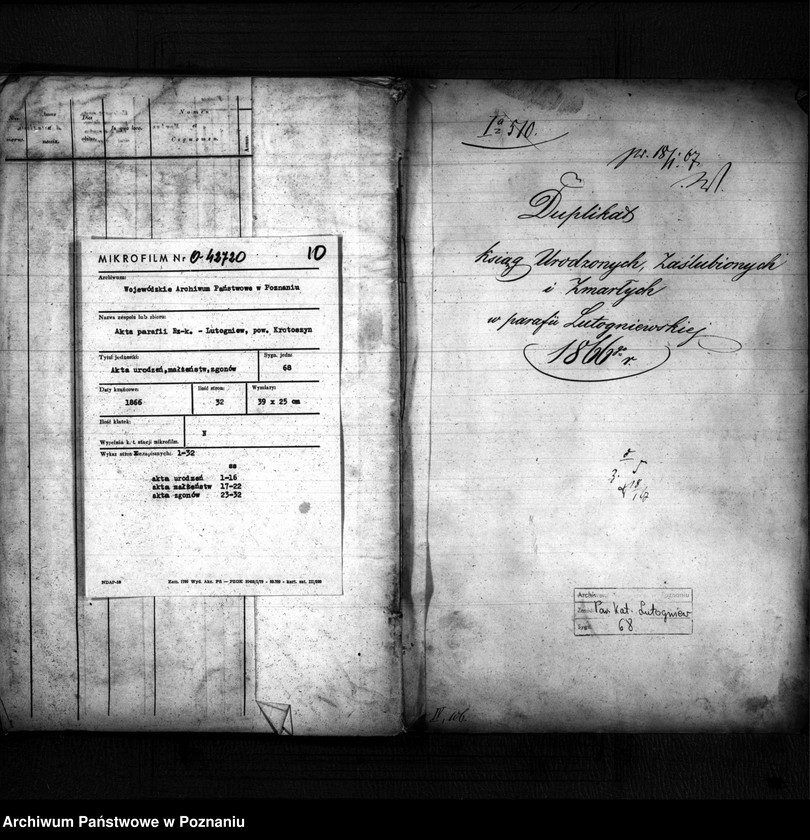 Nomen
Cognomen
MIKROFILM Nr O-42720 10
Archiwum:
Wojewódzkie Archiwum Państwowe w Poznaniu
Nazwa zespołu lub zbioru:
Akta parafii Rz-k. - Lutogniew, pow. Krotoszyn
Tytuł jednostki:
Akta urodzeń,małżeństw,zgonów
Sygn. jedn:
68
Daty krańcowe:
1866
Ilość stron:
32
Wymiary:
39 x 25 cm
Ilość klatek:
N
Wypełnia k. t. stacji mikrofilm.
Wykaz stron 1-32
ss
akta urodzeń 1-16
akta małżeństw 17-22
akta zgonów 23-32
NDAP-38
Ia 510.
pr. 18/1. 67.
Duplikat
ksiąg Urodzonych, Zaślubionych
i Zmarłych
w parafii Lutogniewskiej
1866go r.
Archiwum Poznaniu
Par. Kat. Lutogniew
68
Archiwum Państwowe w Poznaniu